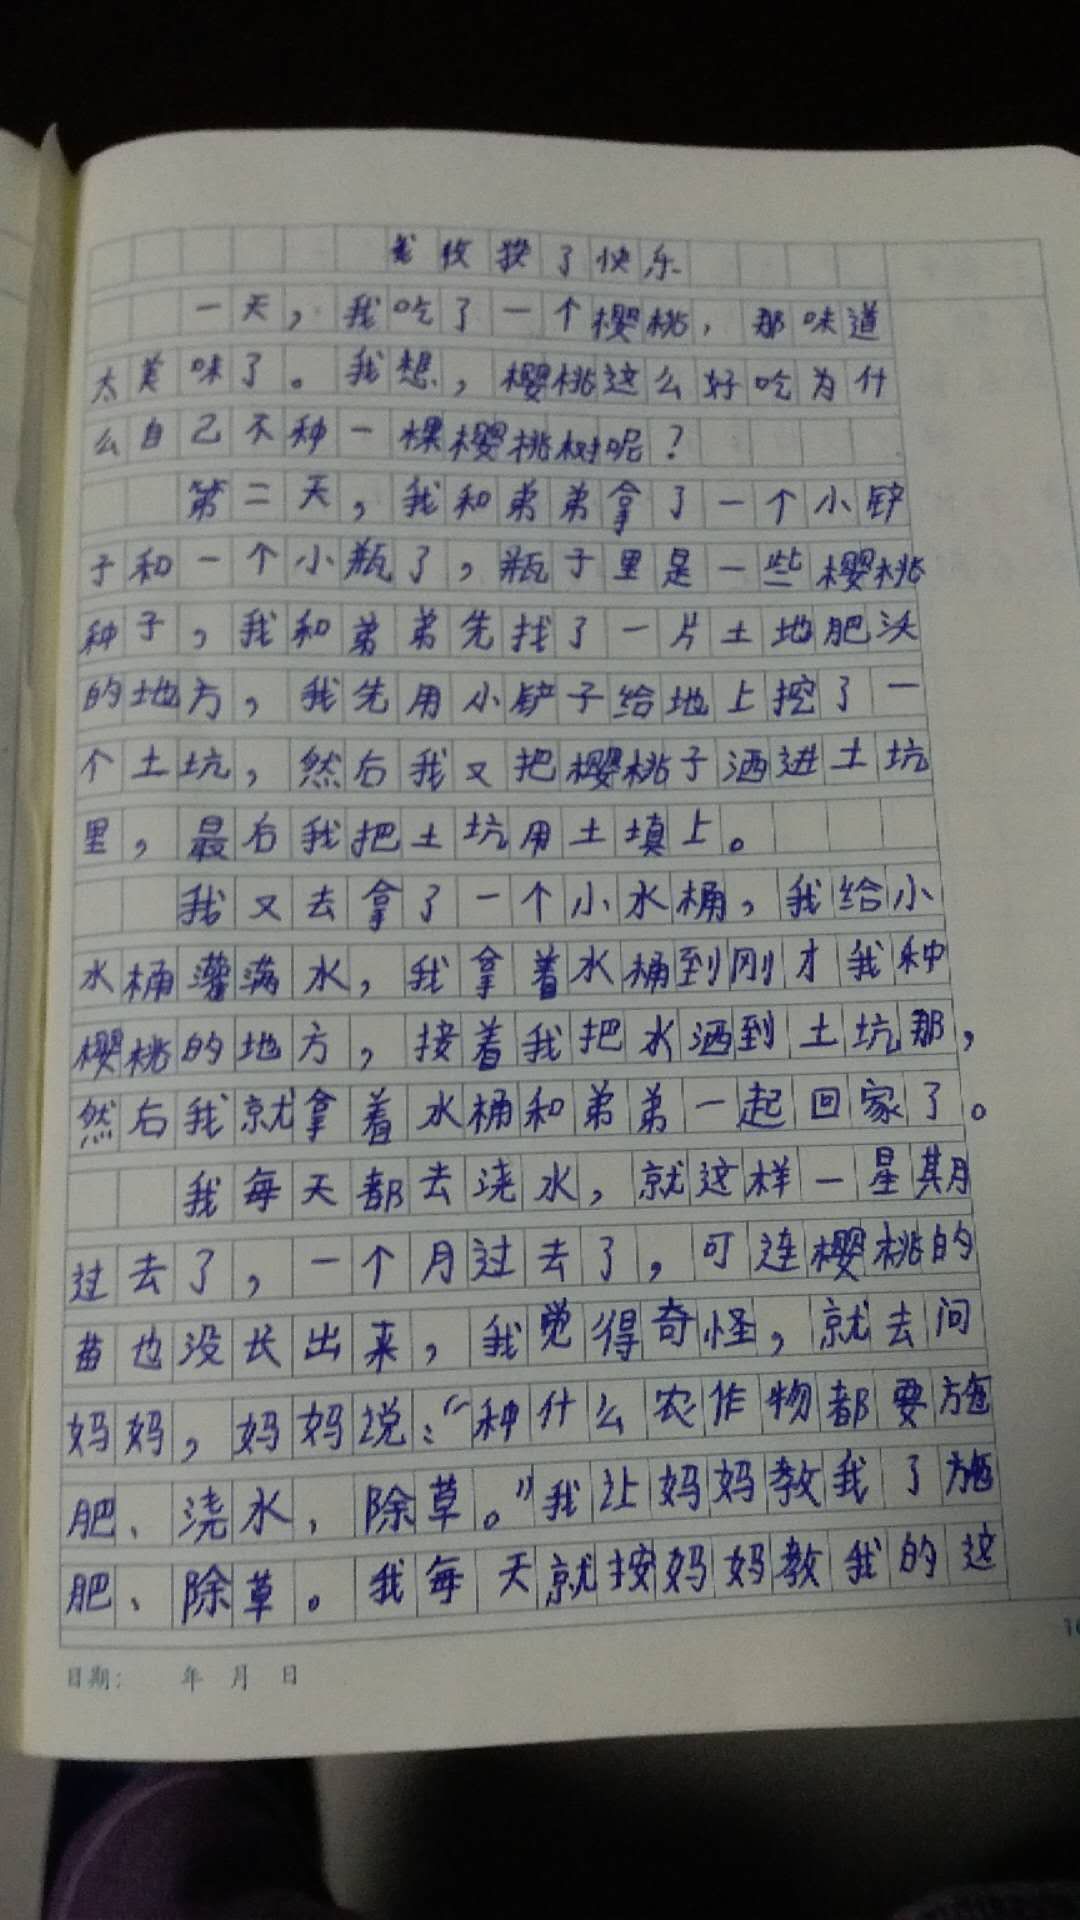 我收获了快乐
一天，我吃了一个樱桃，那味道
太美味了。我想，樱桃这么好吃为什
么自己不种一棵樱桃树呢？
第二天，我和弟弟拿了一个小铲
子和一个小瓶了，瓶子里是一些樱桃
种子，我和弟弟先找了一片土地肥沃
的地方，我先用小铲子给地上挖了一
个土坑，然后我又把樱桃子洒进土坑
里，最后我把土坑用土填上。
我又去拿了一个小水桶，我给小
水桶灌满水，我拿着水桶到刚才我种
樱桃的地方，接着我把水洒到土坑那，
然后我就拿着水桶和弟弟一起回家了。
我每天都去浇水，就这样一星期
过去了，一个月过去了，可连樱桃的
苗也没长出来，我觉得奇怪，就去问
妈妈，妈妈说：“种什么农作物都要施
肥、浇水，除草。”我让妈妈教我了施
肥、除草。我每天就按妈妈教我的这
日期：　年　月　日